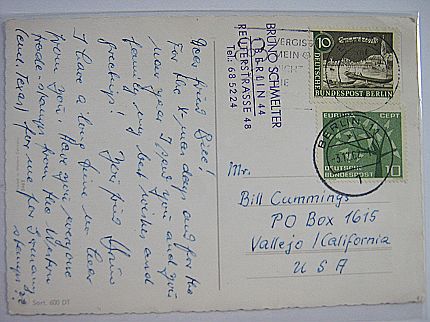 Dear friend Bill!
For the X-mas days and for the
new year I send you and your
family my best wishes and
greetings! Your friend Hans
I have a long time no hear
from you. Have you everyone
trade-stamps from the Western
(and Texas) for me for Germany
stamps?
Sort. 600 DT
BRUNO SCHMELTER
1 BERLIN 44
REUTERSTRASSE 48
Tel. 68 5224
VERGISS
MEIN
NICHT
DIE
10
DEUTSCHE
BUNDESPOST BERLIN
BERLIN
EUROPA CEPT
DEUTSCHE
BUNDESPOST
10
Mr.
Bill Cummings
PO Box 1615
Vallejo / California
U S A